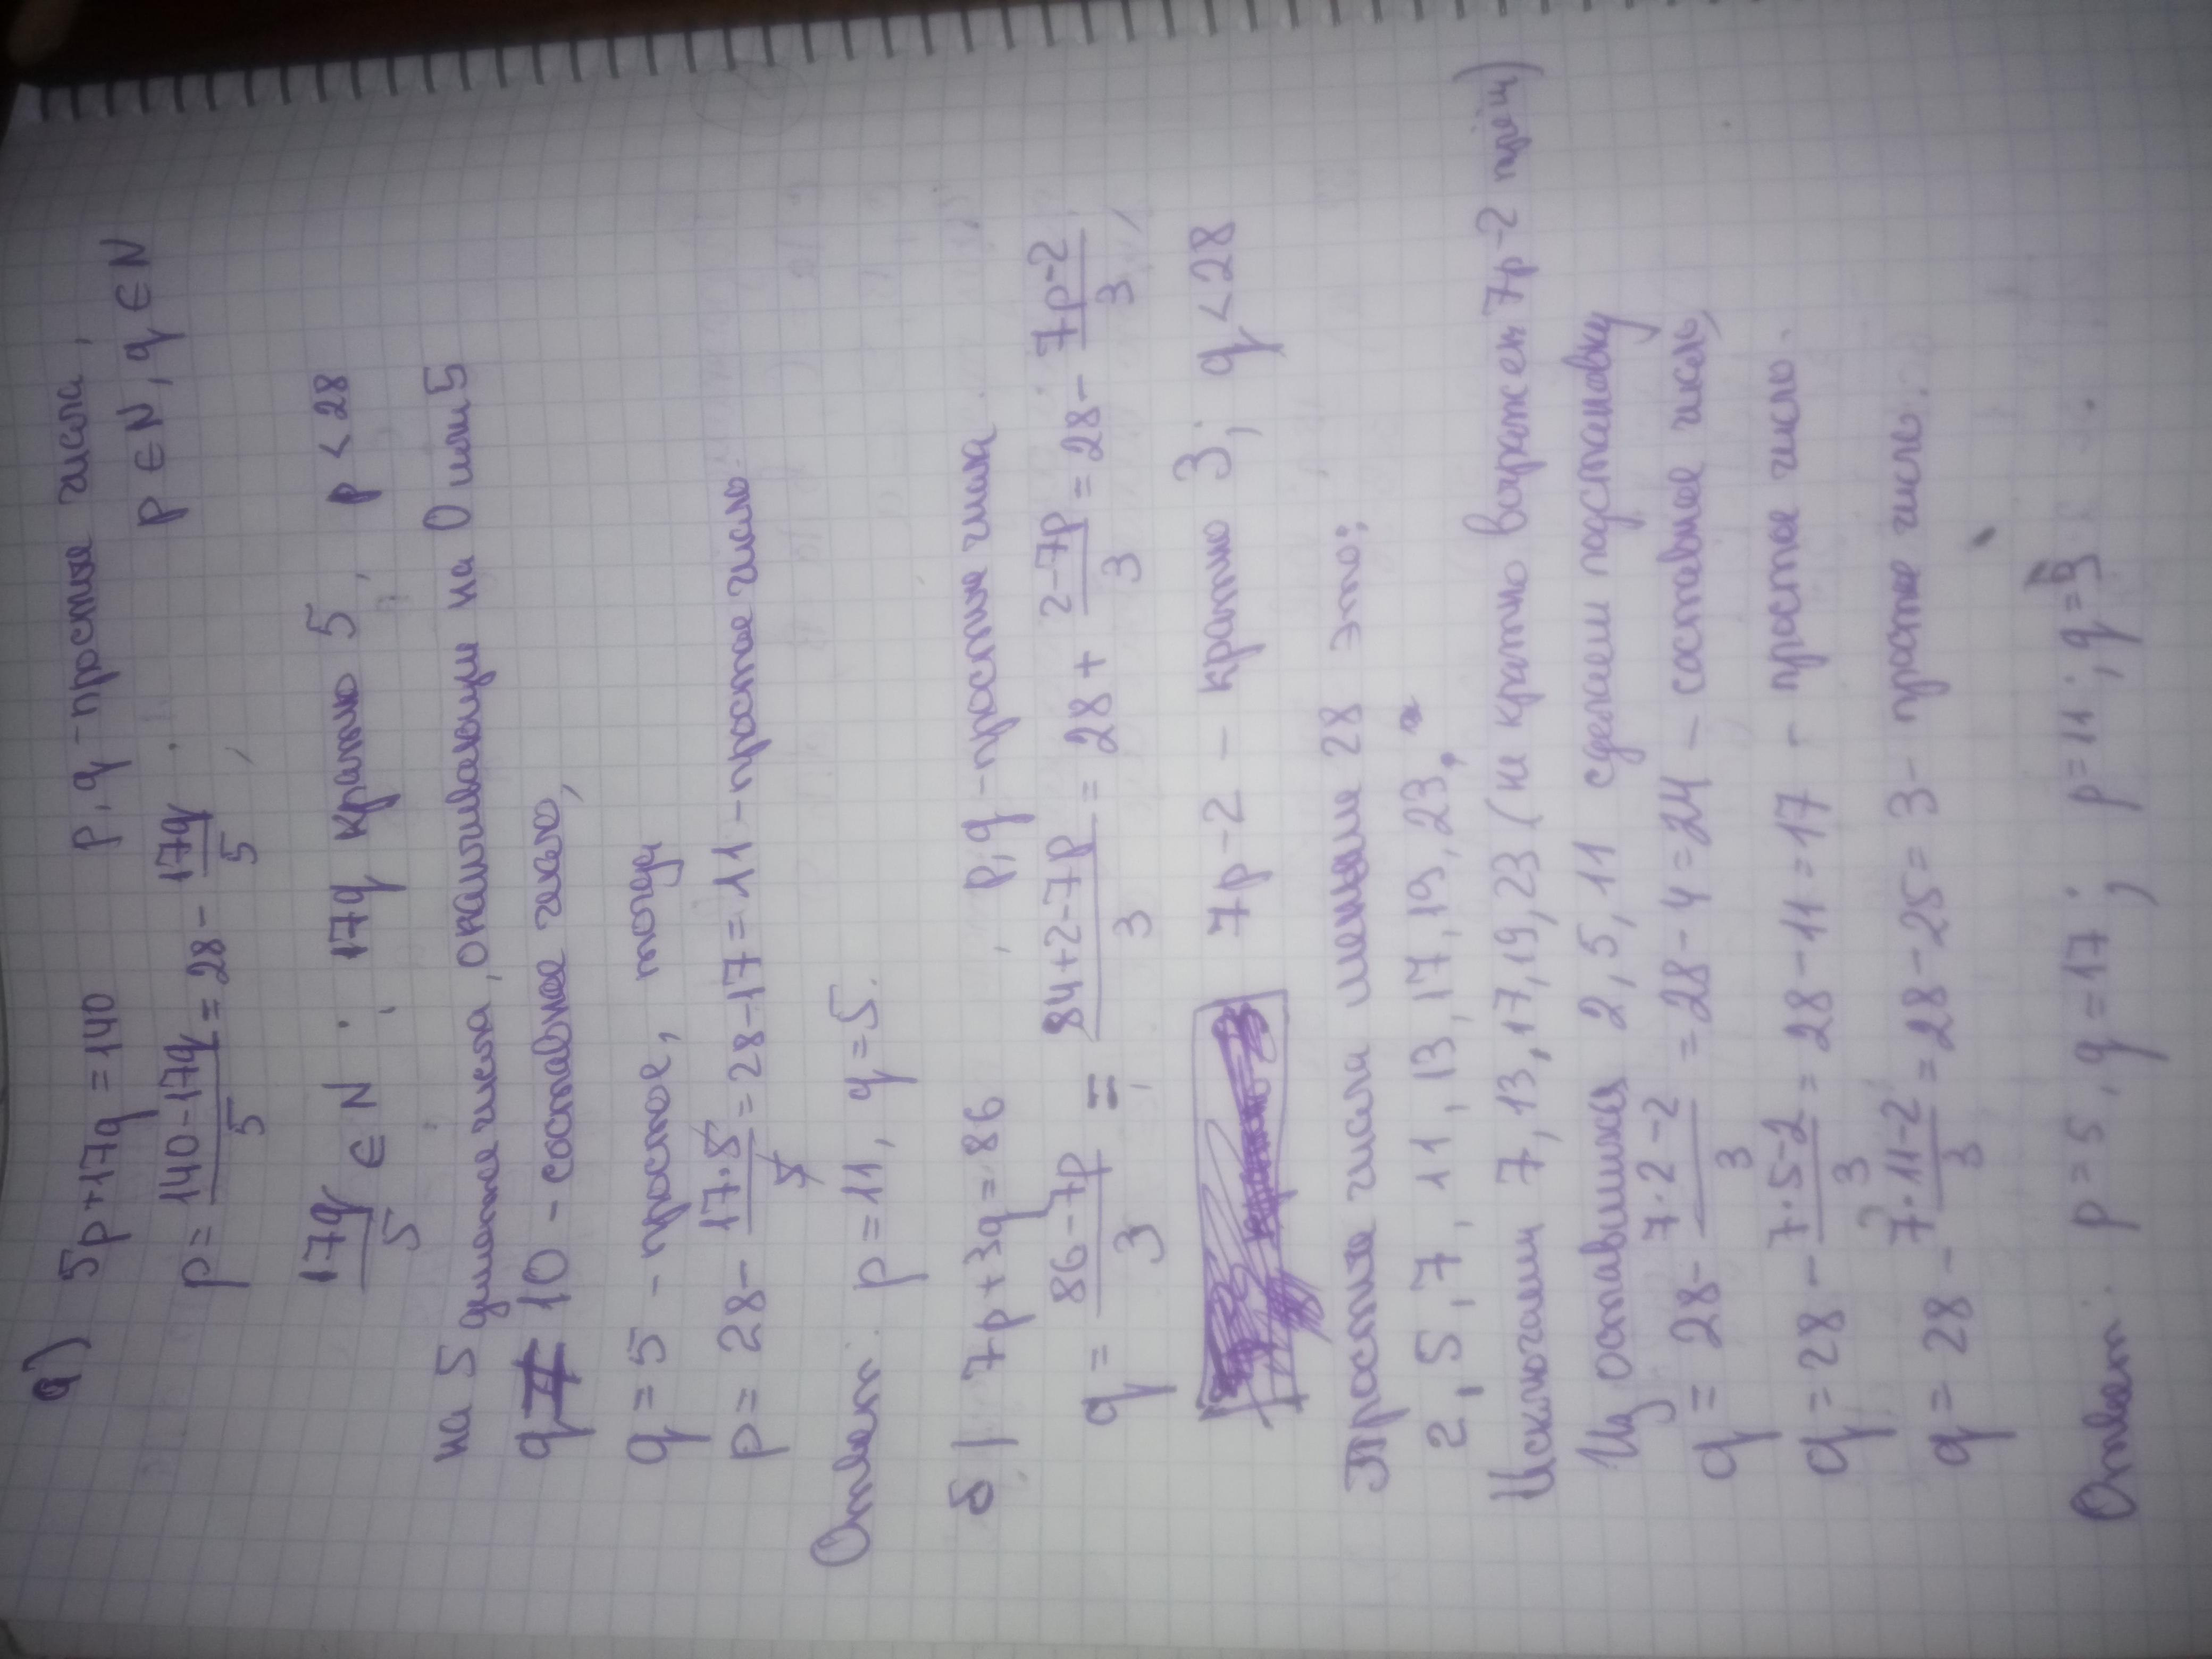 а) 5p+17q=140 p,q-простые числа,
p = \frac{140-17q}{5} = 28 - \frac{17q}{5}, p ∈ N, q ∈ N
\frac{17q}{5} ∈ N; 17q кратно 5, p < 28
на 5 делятся числа, оканчивающиеся на 0 или 5
q ≠ 10 - составное число,
q = 5 - простое, тогда
p = 28 - \frac{17·5}{5} = 28-17 = 11 - простое число.
Ответ. p = 11, q = 5.
б) 7p+3q=86, p,q-простые числа
q = \frac{86-7p}{3} = \frac{84+2-7p}{3} = 28 + \frac{2-7p}{3} = 28 - \frac{7p-2}{3},
7p-2 - кратно 3; q < 28
Простые числа меньшие 28 это:
2, 5, 7, 11, 13, 17, 19, 23,
Исключаем 7, 13, 17, 19, 23 (не кратно выражен 7p-2 трём)
Из оставшихся 2, 5, 11 сделаем подстановку
q = 28 - \frac{7·2-2}{3} = 28-4 = 24 - составное число,
q = 28 - \frac{7·5-2}{3} = 28-11 = 17 - простое число.
q = 28 - \frac{7·11-2}{3} = 28-25 = 3 - простое число.
Ответ. p = 5, q = 17; p = 11; q = 3